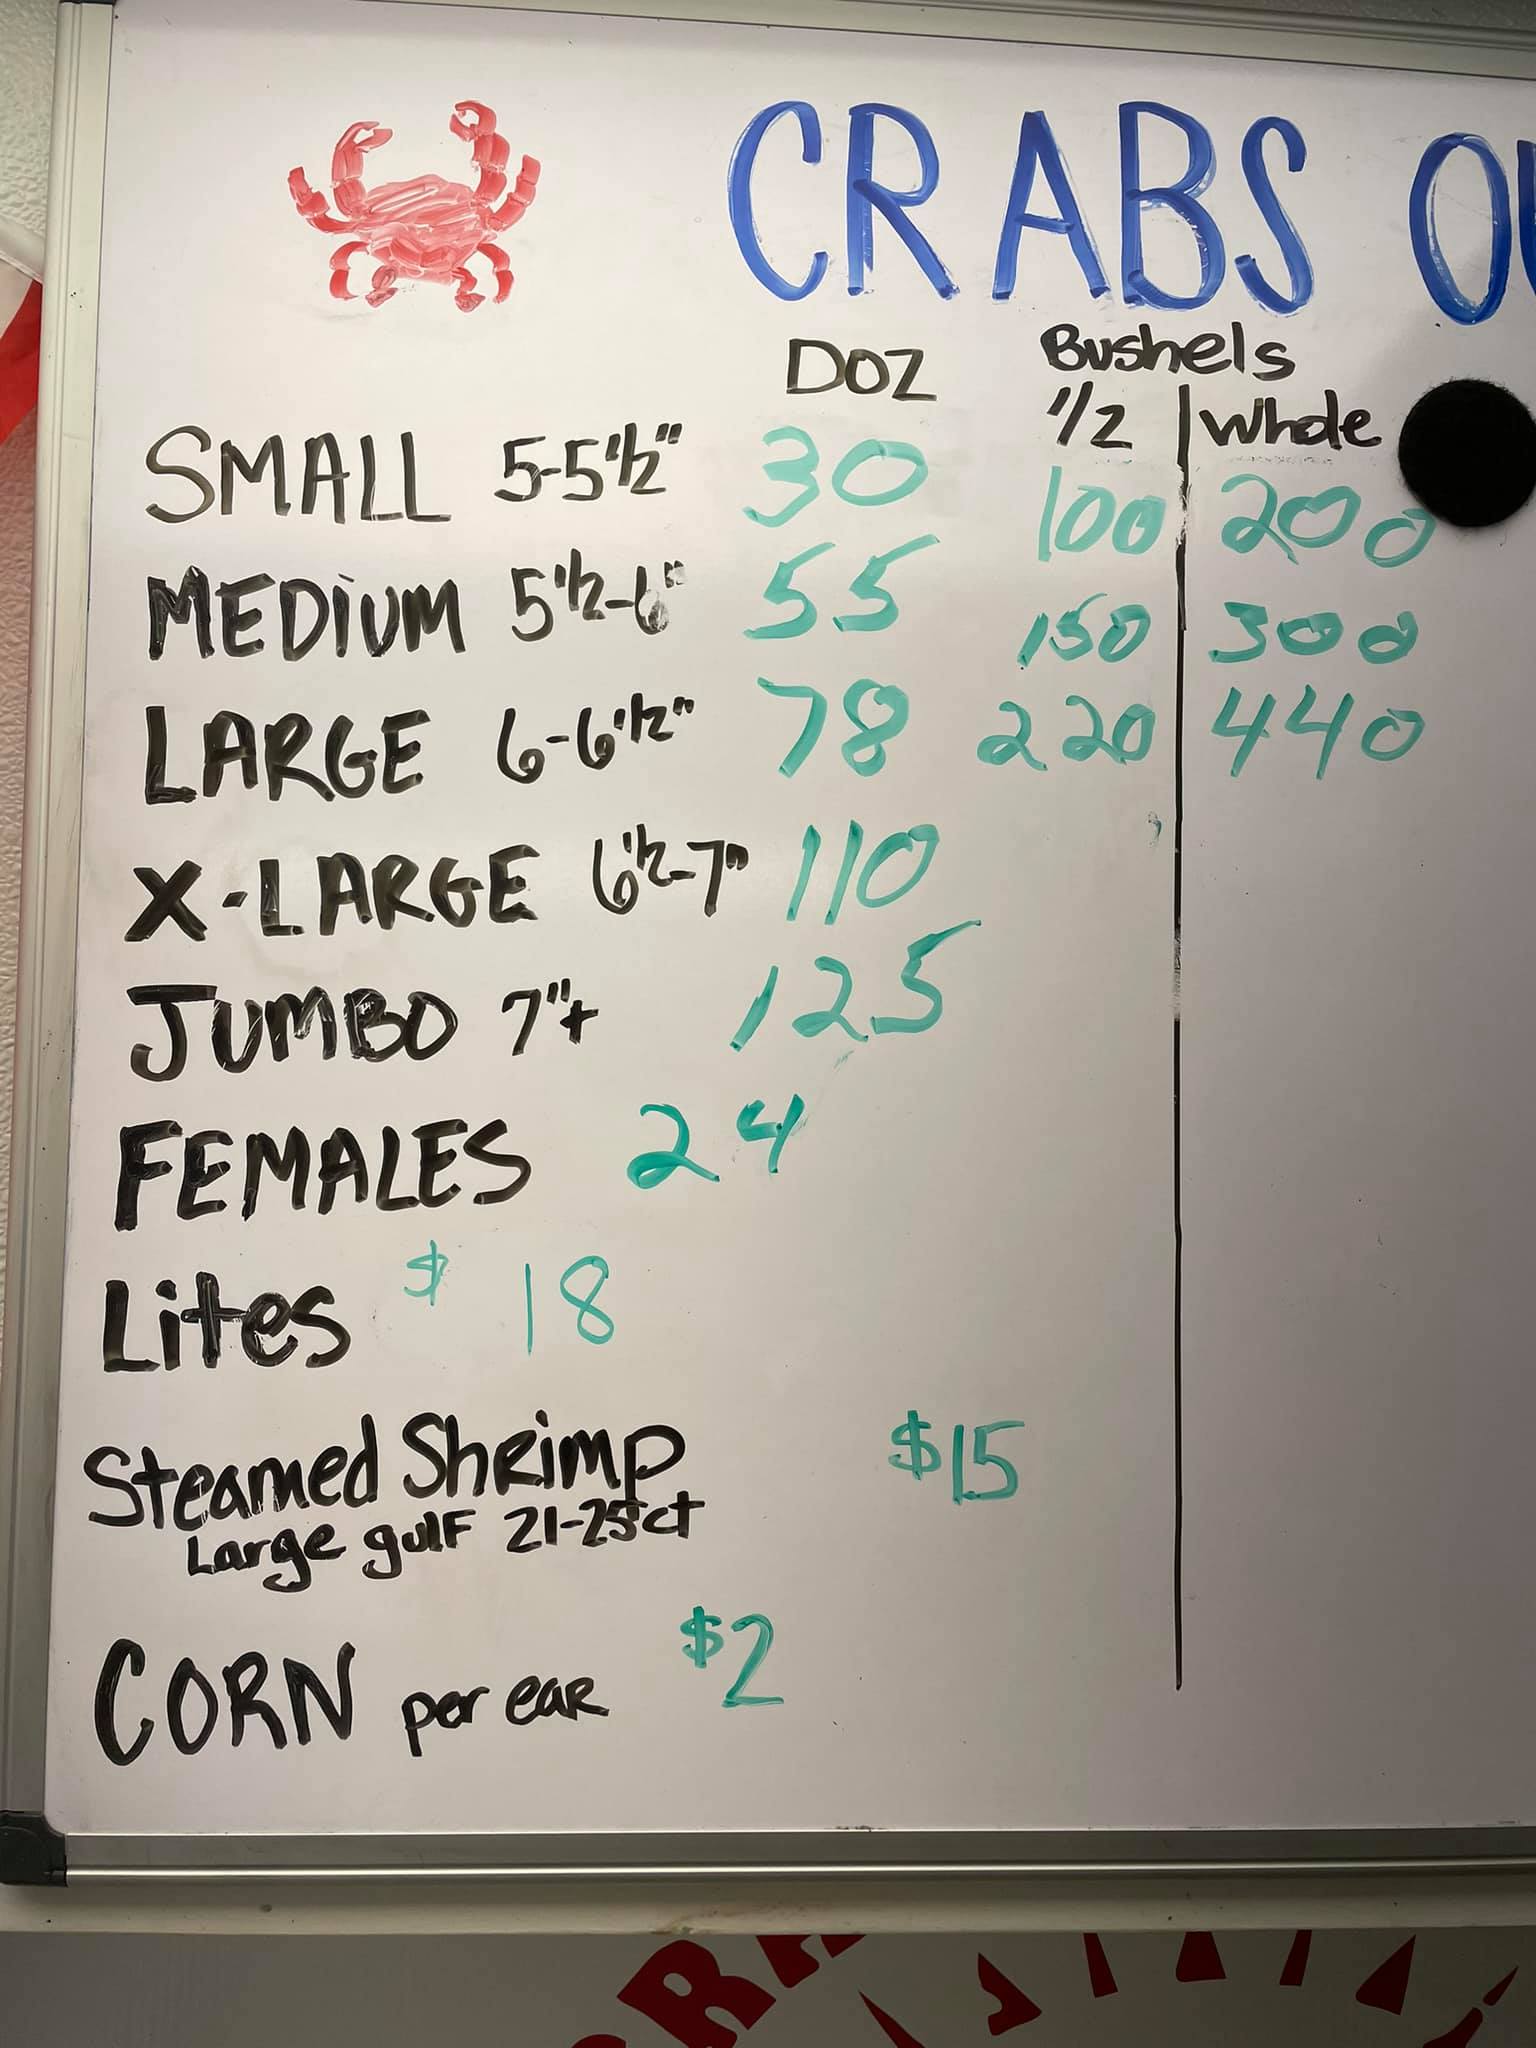 CRABS
DOZ Bushels
1/2 | Whole
SMALL 5-5 1/2" 30 100 200
MEDIUM 5 1/2-6" 55 150 300
LARGE 6-6 1/2" 78 220 440
X-LARGE 6 1/2-7" 110
JUMBO 7"+ 125
FEMALES 24
Lites $ 18
Steamed Shrimp $15
Large gulf 21-25ct
CORN per ear $2